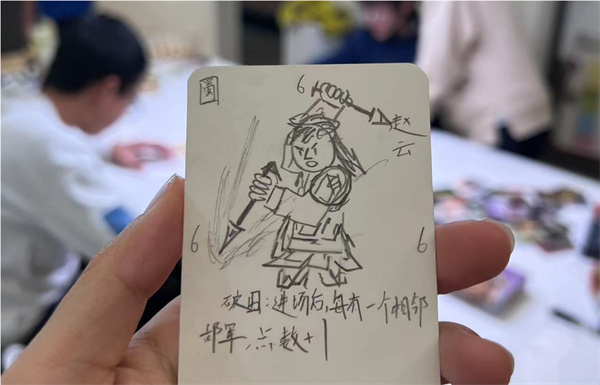 蜀
6
赵云
6
6
破围:进场后,每有一个相邻
军,点数+1